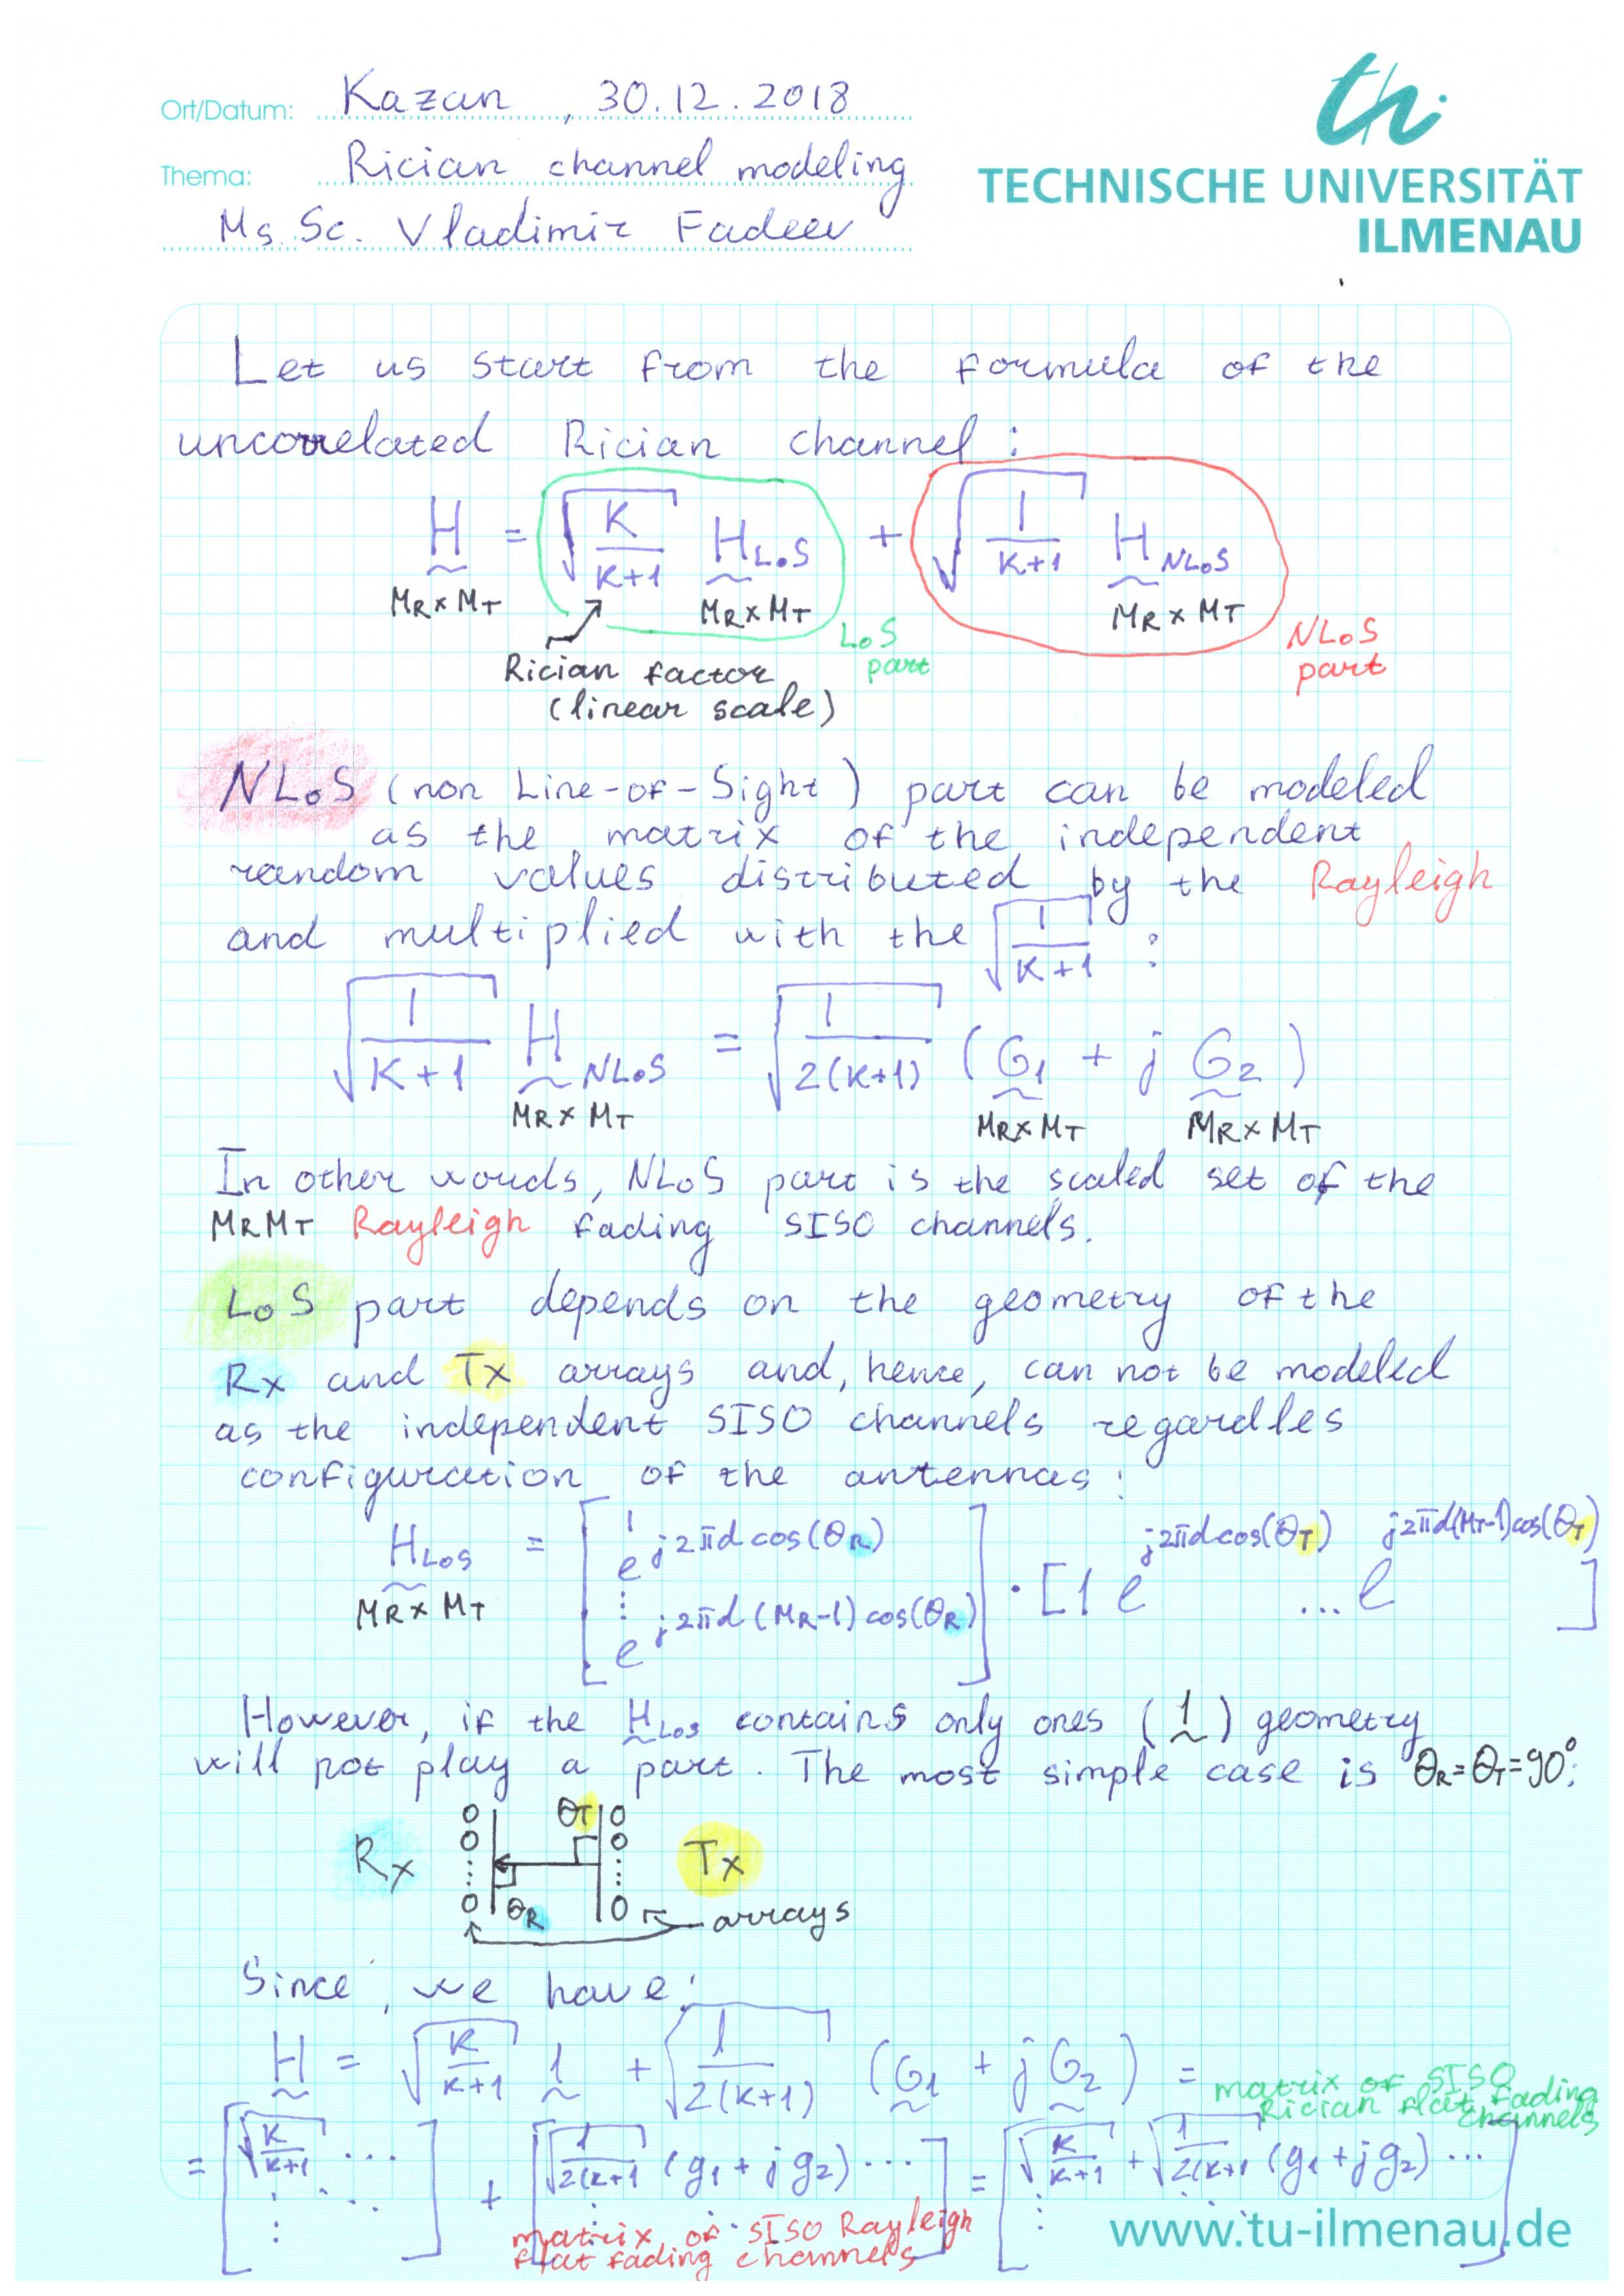 Ort/Datum: Kazan, 30.12.2018
Thema: Rician channel modeling
Ms.Sc. Vladimir Fadeev
th
TECHNISCHE UNIVERSITÄT
ILMENAU
Let us start from the formula of the
uncorrelated Rician channel:
H = √(K/(K+1)) H_LoS + √(1/(K+1)) H_NLoS
MR×MT MR×MT MR×MT
LoS part
NLoS part
Rician factor
(linear scale)
NLoS (non Line-of-Sight) part can be modeled
as the matrix of the independent
random values distributed by the Rayleigh
and multiplied with the √(1/(K+1)) :
√(1/(K+1)) H_NLoS = √(1/(2(K+1))) (G1 + j G2)
MR×MT MR×MT MR×MT
In other words, NLoS part is the scaled set of the
MRMT Rayleigh fading SISO channels.
LoS part depends on the geometry of the
Rx and Tx arrays and, hence, can not be modeled
as the independent SISO channels regardles
configuration of the antennas:
H_LoS = [1 e^(j2πd cos(θR)) ⋮ e^(j2πd(MR-1)cos(θR))] · [1 e^(j2πdcos(θT)) ... e^(j2πd(MT-1)cos(θT))]
MR×MT
However, if the H_LoS contains only ones (1) geometry
will not play a part. The most simple case is θR=θT=90°:
θT
Rx Tx
θR arrays
Since, we have:
H = √(K/(K+1)) 1 + √(1/(2(K+1))) (G1 + jG2) =
matrix of SISO
Rician flat fading
channels
= [√(K/(K+1)) ... ⋮ ⋱] + [√(1/(2(K+1) (g1+jg2) ... ⋮ ⋱] = [√(K/(K+1)) + √(1/(2(K+1) (g1+jg2) ... ⋮ ⋱]
matrix of SISO Rayleigh
flat fading channels
www.tu-ilmenau.de